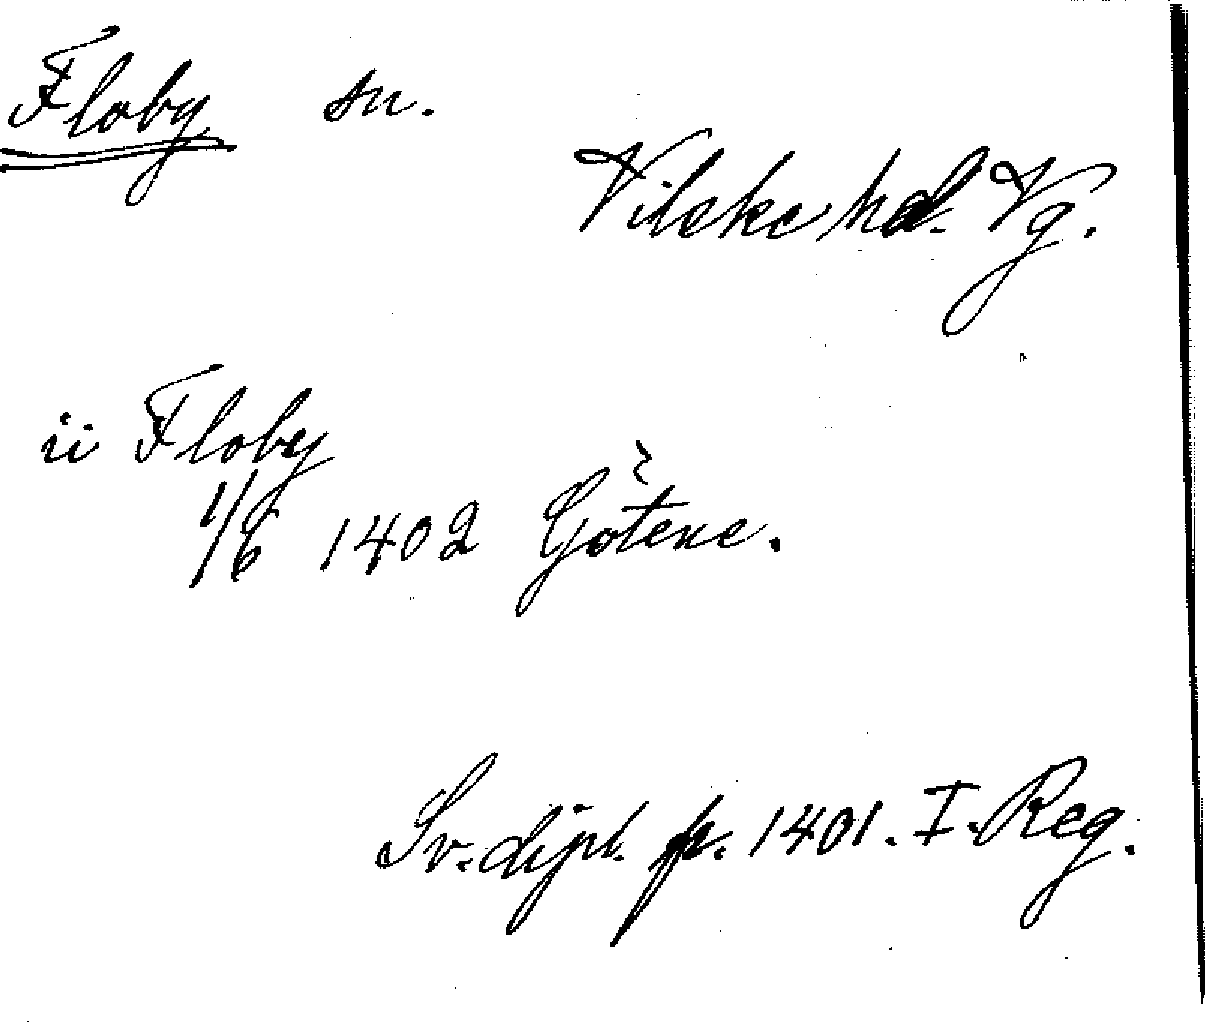 Floby sn.
Vilske hd. Vg.
ii Floby
1/6 1402 Götene.
Sv. dipl. fr. 1401. I. Reg.